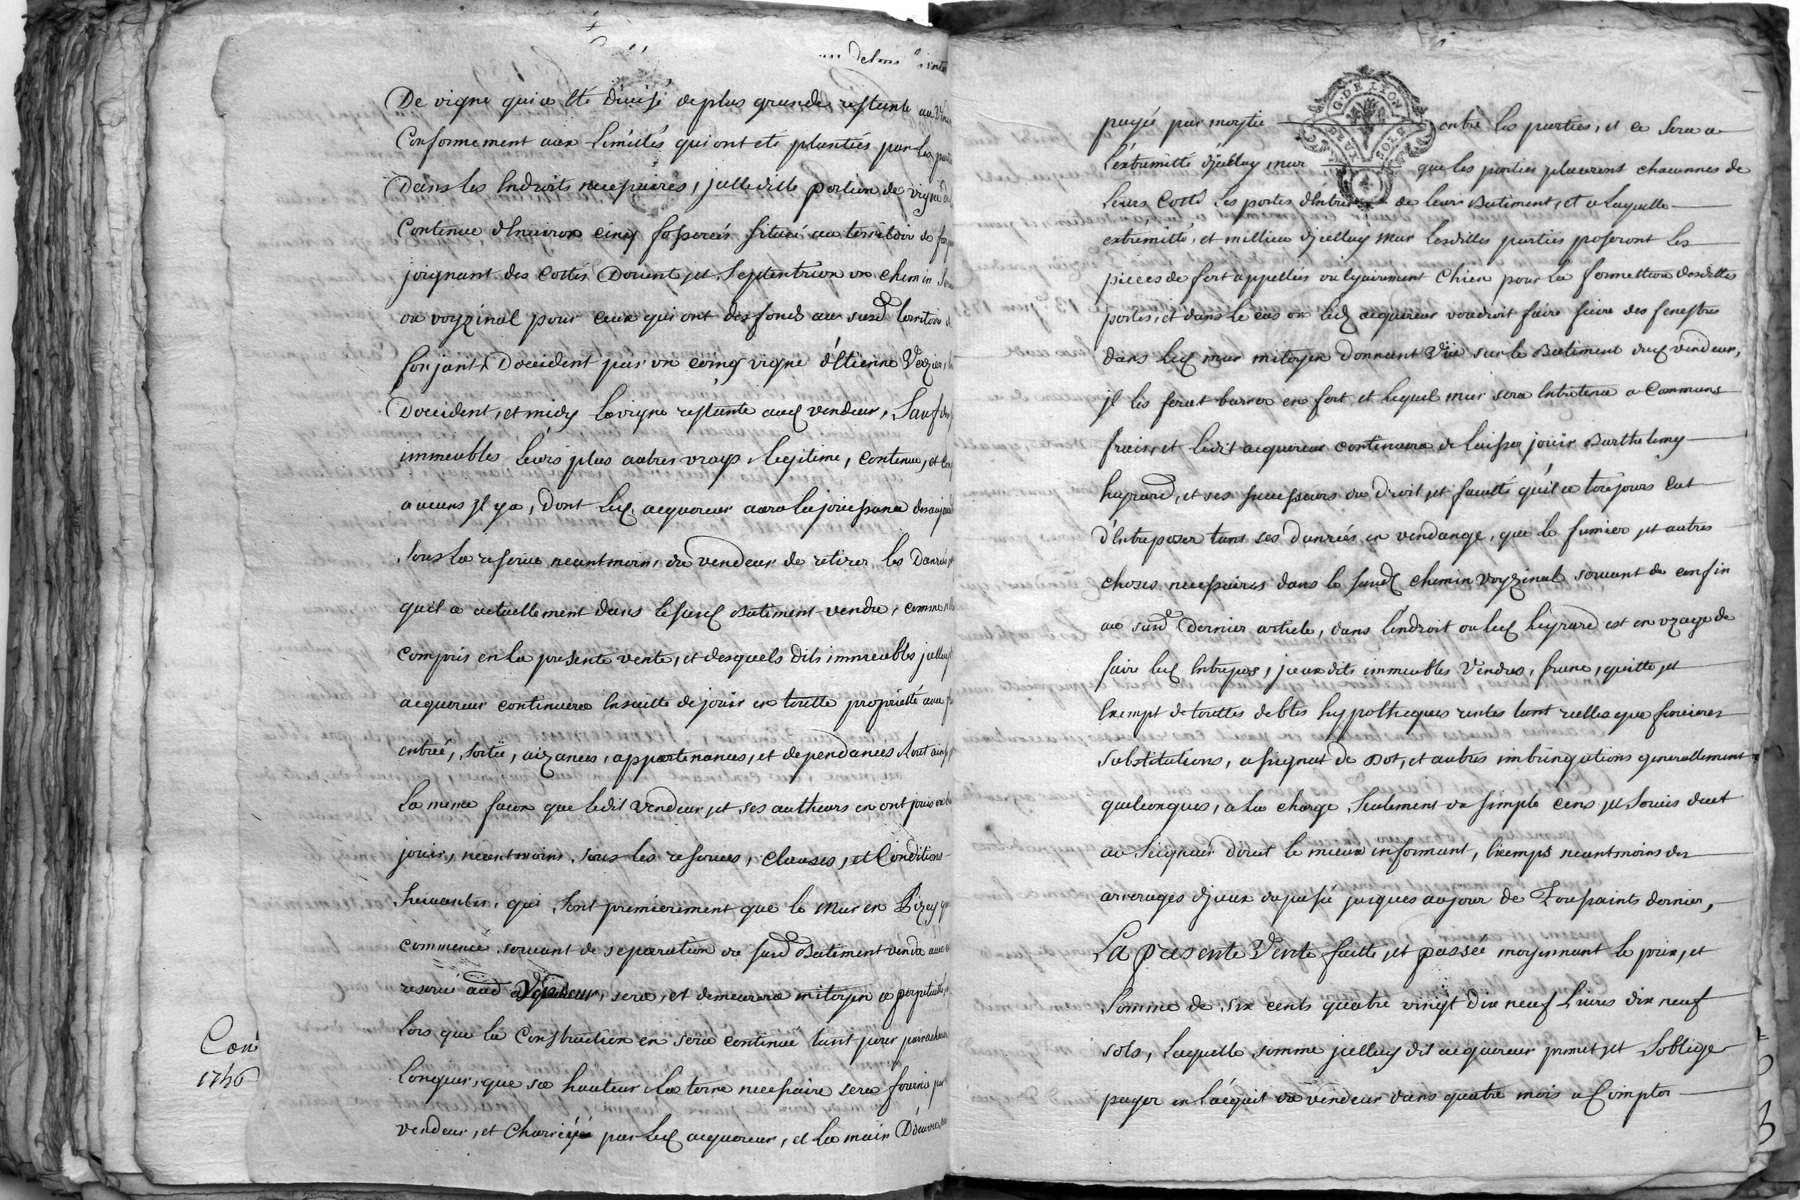 De vigne qui a été divisé de plus grande restante au
Conformement aux Limittes qui ont eté plantées par les
Dans les Endroits necessaires, jcelle ditte portion de vigne
Contenue d'Environ cinq fosserées Situé au territoire de
joignant des Cottés Dorient et Septentrion un chemin
ou voyzinal pour ceux qui ont des fonds au susd territoire
Joñjants Doccident par un coing vigne d'Etienne Verzier
Doccident, et midy la vigne restante aud vendeur, Sauf
immeubles leurs plus autres vrays legitime, contenue, et
aucuns Jl y a, Dont led acquereur aura la jouissance
sous la reserve neantmoins, du vendeur de retirer les Danrées
quil a actuellement dans le susd Batiment vendu, comme
compris en la presente vente, et desquels dits immeubles
acquereur continuera Ensuitte de jouir en toutte proprietté avec
entrée, sortie, aizances, appartenances, et dependances tout
la meme facon que ledit vendeur, et ses autheurs en ont joui
jouir, neantmoins, sous les reserves, clauses, et Conditions
Suivantes, qui sont premierement que le mur en Pizay
commencé servant de separation du susd Batiment vendu
reservé aud Vendeur, sera, et demeurera mitoyen a perpetuité
lors que la Construction en sera continué tant pour
longeur, que sa hauteur la terre necessaire sera fournie par
vendeur, et charriéé par led acquereur, et la main D'oeuvre
Con
1746
G. DE LYON
payée par moytié entre les parties, et ce sera a
l'extremitté djcelluy mur que les parties placeront chacunnes de
leurs Cotté Les portes d'Entrée de leur Batiment, et a laquelle
extremitté, et millieu djcelluy mur Lesdittes parties poseront les
pieces de fert appellées vulgairement Chien pour la formetture desdittes
portes, et dans le cas ou led acquereur voudroit faire faire des fenestres
dans led mur mitoyen donnant Vüe sur le Batiment dud vendeur,
jl les ferat barrer en fert et lequel mur sera Entretenu a Communs
frais, et ledit acquereur continuera de laisser jouir Barthelemy
heyraud, et ses successeurs du droit, et faculté qu'il a toujours eut
d'Entreposer tans ses danrées, en vendange, que le fumier, et autres
choses necessaires dans le susd chemin voyzinal servant de confin
au susd Dernier article, dans l'endroit ou led heyraud est en uzage de
faire led Entrepos, jceux dits immeubles Vendus, franc, quitte, et
Exempt de touttes debtes hypotheques rentes tant reelles que foncieres
substitutions, assignat de Dot, et autres imbringations generallement
quelconques, a la charge Seulement du simple cens et servis duet
au Seigneur direct le mieux informant, Exempt neantmoins des
arrerages djceux du passé jusques aujour de Toussaints dernier,
La presente Vente faitte, et passée moyennant le prix, et
somme de six cents quatre vingt dix neuf Livres dix neuf
sols, laquelle somme jcelluy dit acquereur promet, et soblige
payer en l'acquit du vendeur dans quatre mois a Compter